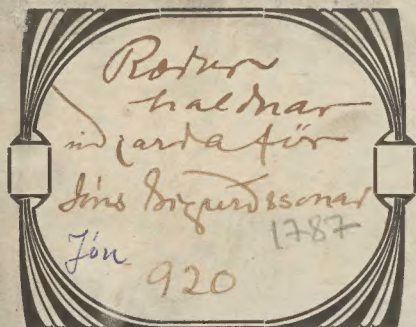 Rædur
haldnar
við jarðaför
Jóns Sigurðssonar
1787
Jón
920